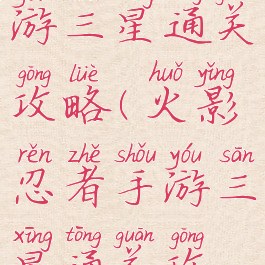 游三星通关
gōng lüè huǒ yǐng
攻略(火影
rěn zhě shǒu yóu sān
忍者手游三
xīng tōng guān gōng
星通关攻